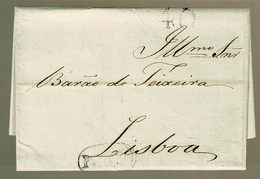 Illmo Snr
Barão de Teixeira
Lisboa